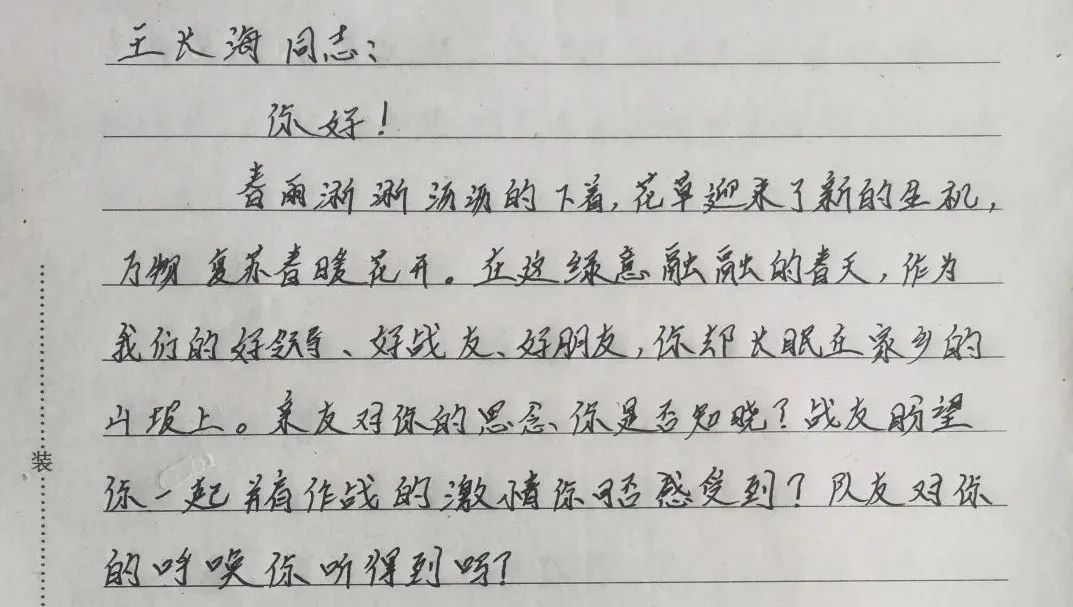 王长海同志：
你好！
春雨淅淅沥沥的下着,花草迎来了新的生机,
万物复苏春暖花开。在这绿意融融的春天,作为
我们的好领导、好战友、好朋友,你却长眠在家乡的
山坡上。亲友对你的思念、你是否知晓？战友盼望
你一起并肩作战的激情你可否感受到？队友对你
的呼唤你听得到吗？
装